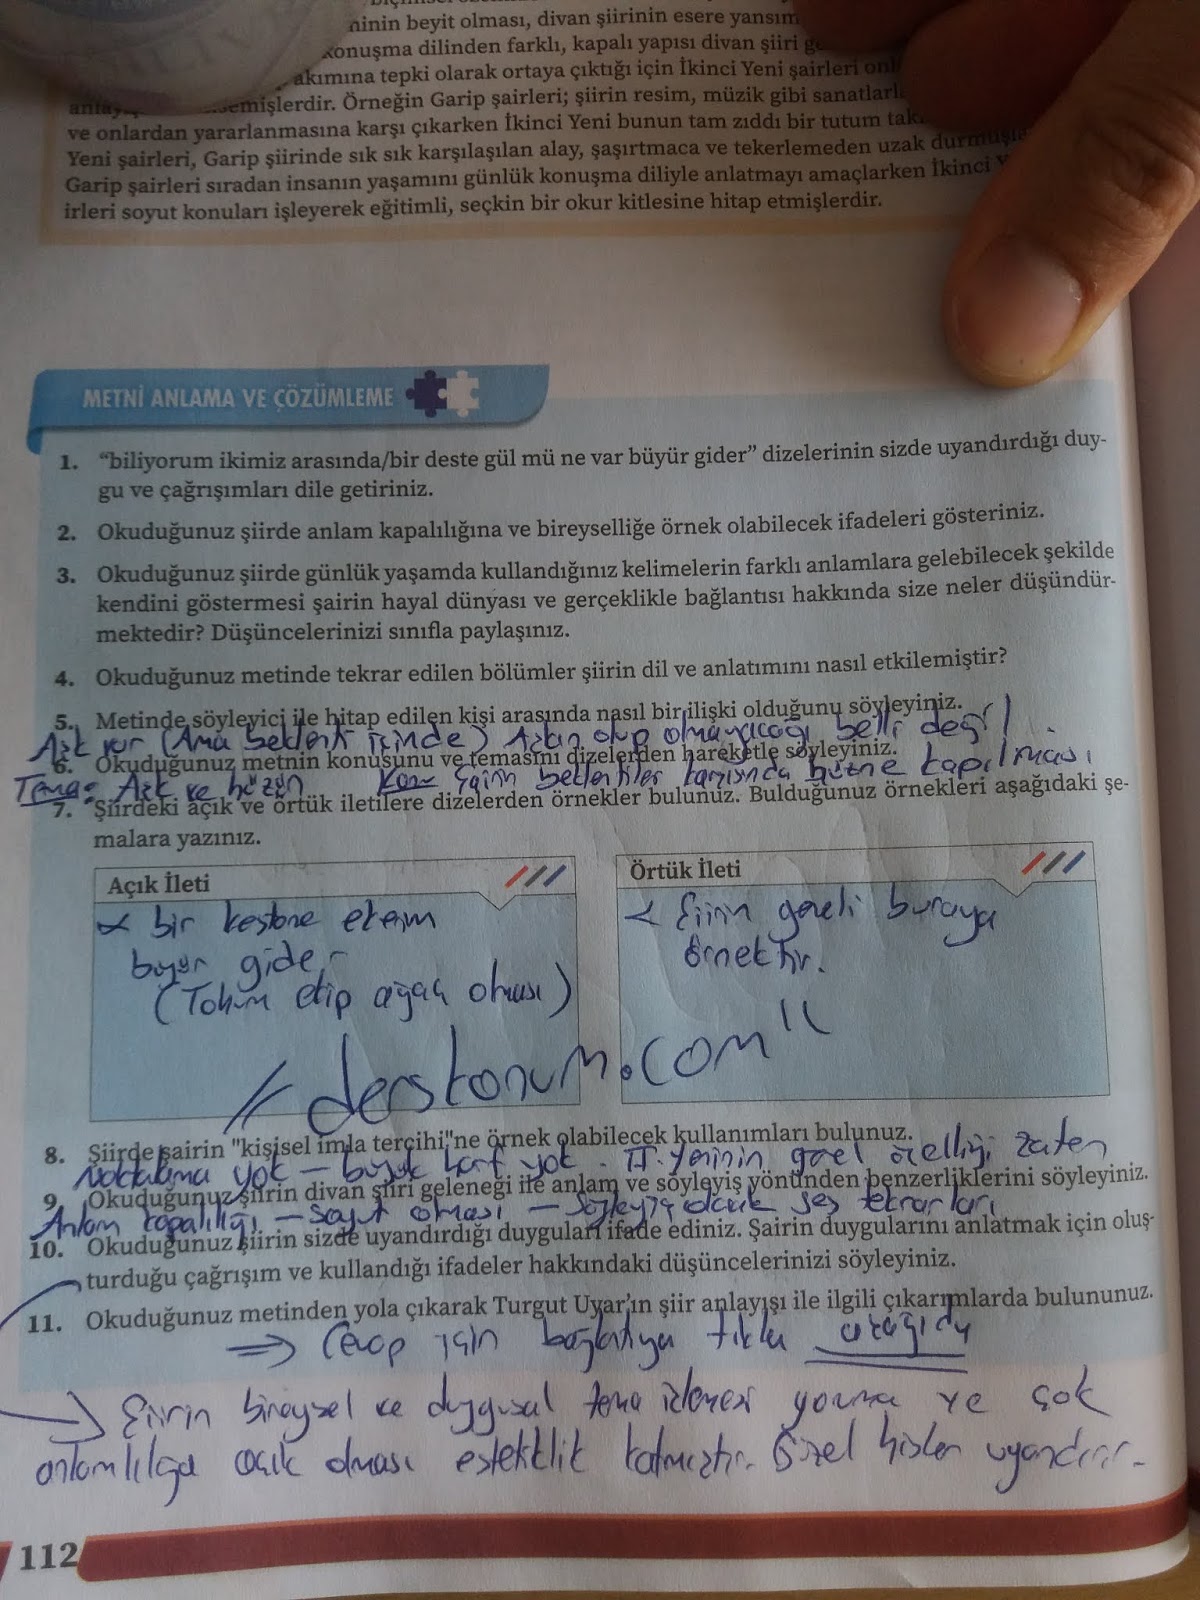 ninin beyit olması, divan şiirinin esere yansım
konuşma dilinden farklı, kapalı yapısı divan şiiri
akımına tepki olarak ortaya çıktığı için İkinci Yeni şairleri
emişlerdir. Örneğin Garip şairleri; şiirin resim, müzik gibi sanatlarl
ve onlardan yararlanmasına karşı çıkarken İkinci Yeni bunun tam zıddı bir tutum
Yeni şairleri, Garip şiirinde sık sık karşılaşılan alay, şaşırtmaca ve tekerlemeden uzak durmuşla
Garip şairleri sıradan insanın yaşamını günlük konuşma diliyle anlatmayı amaçlarken İkinci Y
irleri soyut konuları işleyerek eğitimli, seçkin bir okur kitlesine hitap etmişlerdir.
METNİ ANLAMA VE ÇÖZÜMLEME
1. "biliyorum ikimiz arasında/bir deste gül mü ne var büyür gider" dizelerinin sizde uyandırdığı duy-
gu ve çağrışımları dile getiriniz.
2. Okuduğunuz şiirde anlam kapalılığına ve bireyselliğe örnek olabilecek ifadeleri gösteriniz.
3. Okuduğunuz şiirde günlük yaşamda kullandığınız kelimelerin farklı anlamlara gelebilecek şekilde
kendini göstermesi şairin hayal dünyası ve gerçeklikle bağlantısı hakkında size neler düşündür-
mektedir? Düşüncelerinizi sınıfla paylaşınız.
4. Okuduğunuz metinde tekrar edilen bölümler şiirin dil ve anlatımını nasıl etkilemiştir?
5. Metinde söyleyici ile hitap edilen kişi arasında nasıl bir ilişki olduğunu söyleyiniz.
Aşk var (Ama beklenti içinde) Aşkın olup olmayacağı belli değil
6. Okuduğunuz metnin konusunu ve temasını dizelerden hareketle söyleyiniz.
Tema= Aşk ve hüzün şairin beklentiler karşısında hüzne kapılması
7. Şiirdeki açık ve örtük iletilere dizelerden örnekler bulunuz. Bulduğunuz örnekleri aşağıdaki şe-
malara yazınız.
Açık İleti
bir kestane ekerim
büyür gider
(Tohum ekip ağaç olması)
Örtük İleti
Şiirin geneli buraya
örnektir.
"derskonum.com"
8. Şiirde şairin "kişisel imla tercihi"ne örnek olabilecek kullanımları bulunuz.
Noktalama yok - büyük harf yok. II. Yeninin genel özelliği zaten
9. Okuduğunuz şiirin divan şiiri geleneği ile anlam ve söyleyiş yönünden benzerliklerini söyleyiniz.
Anlam kapalılığı - soyut olması - Söyleyiş olarak ses tekrarları
10. Okuduğunuz şiirin sizde uyandırdığı duyguları ifade ediniz. Şairin duygularını anlatmak için oluş-
turduğu çağrışım ve kullandığı ifadeler hakkındaki düşüncelerinizi söyleyiniz.
11. Okuduğunuz metinden yola çıkarak Turgut Uyar'ın şiir anlayışı ile ilgili çıkarımlarda bulununuz.
⇒ Cevap için bağlantıya tıkla aşağıda
Şiirin bireysel ve duygusal tema izlemesi yoruma ve çok
anlamlılığa açık olması esteklik katmıştır. Güzel hisler uyandırır.
112